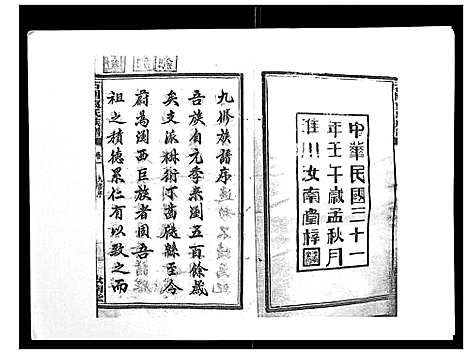 中華民國三十一
年壬午歲孟秋月
淮川汝南堂梓
九修族譜序
吾族自元季來瀏五百餘歲
矣支派繁衍瓜瓞緜緜至今
蔚為瀏西巨族者固吾
祖之積德累仁有以致之而